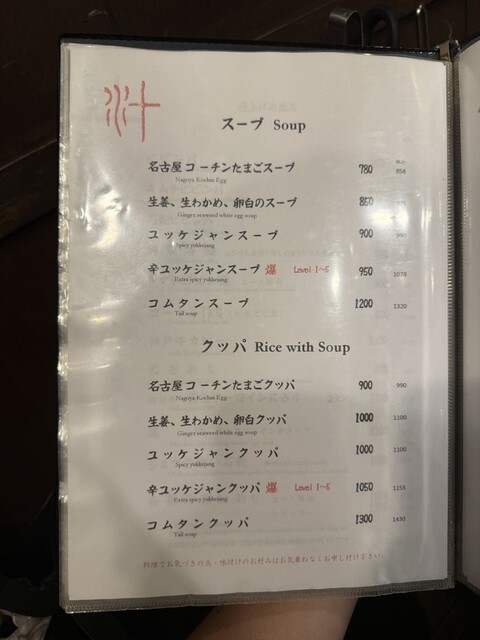 汁
スープ Soup
名古屋コーチンたまごスープ 780 858
Nagoya Kochin Egg
生姜、生わかめ、卵白のスープ 850
Ginger seaweed white egg soup
ユッケジャンスープ 900 990
Spicy yukkejang
辛ユッケジャンスープ 爆 Level 1~5 950 1078
Extra spicy yukkejang
コムタンスープ 1200 1320
Tail soup
クッパ Rice with Soup
名古屋コーチンたまごクッパ 900 990
Nagoya Kochin Egg
生姜、生わかめ、卵白クッパ 1000 1100
Ginger seaweed white egg soup
ユッケジャンクッパ 1000 1100
Spicy yukkejang
辛ユッケジャンクッパ 爆 Level 1~5 1050 1155
Extra spicy yukkejang
コムタンクッパ 1300 1430
Tail soup
料理でお気づきの点・味付けのお好みはお気兼ねなしお申し付け下さい。